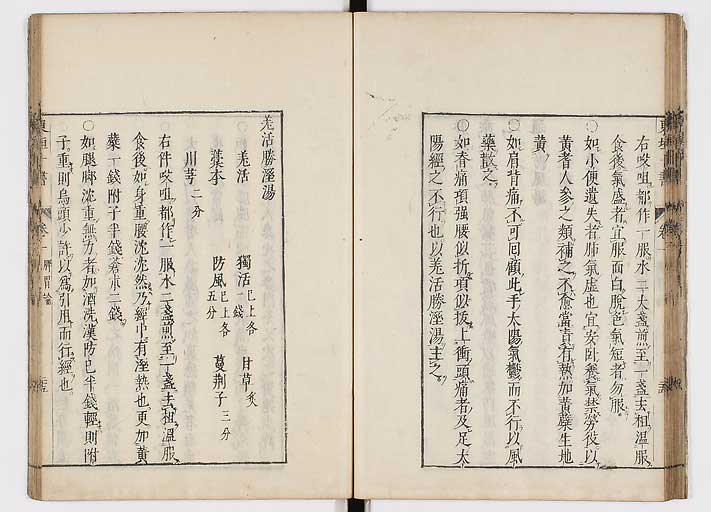 右㕮咀都作一服水二大盞煎至一盞去柤溫服
食後氣盛者宜服面白脫色氣短者勿服
○如小便遺失者肺氣虛也宜安卧養氣禁勞役以
黃耆人參之類補之不愈當責有熱加黃蘗生地
黃
○如肩背痛不可囘顧此手太陽氣鬱而不行以風
藥散之
○如脊痛項强腰似折項似拔上衝頭痛者及足太
陽經之不行也以羌活勝溼湯主之
羌活勝溼湯
羌活 獨活已上各一錢 甘草炙
藁本 防風已上各五分 蔓荆子三分
川芎二分
右件㕮咀都作一服水二盞煎至一盞去柤溫服
食後如身重腰沈沈然乃經中有溼熱也更加黃
蘗一錢附子半錢蒼朮二錢
○如腿脚沈重無力者加酒洗漢防已半錢輕則附
子重則烏頭少許以為引用而行經也
東垣十書
卷一
脾胃論